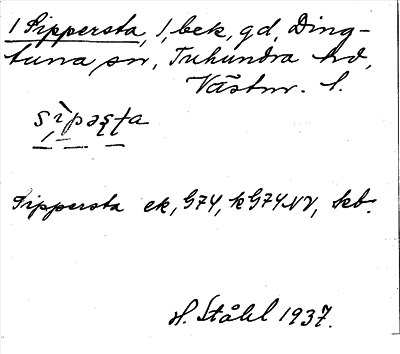 1 Sippersta, 1, bek, gd, Ding-
tuna sn, Tuhundra hd,
Västm. l.
sìpəsta
Sippersta ek, G74, kG74NV, kb.
H. Ståhl 1937.